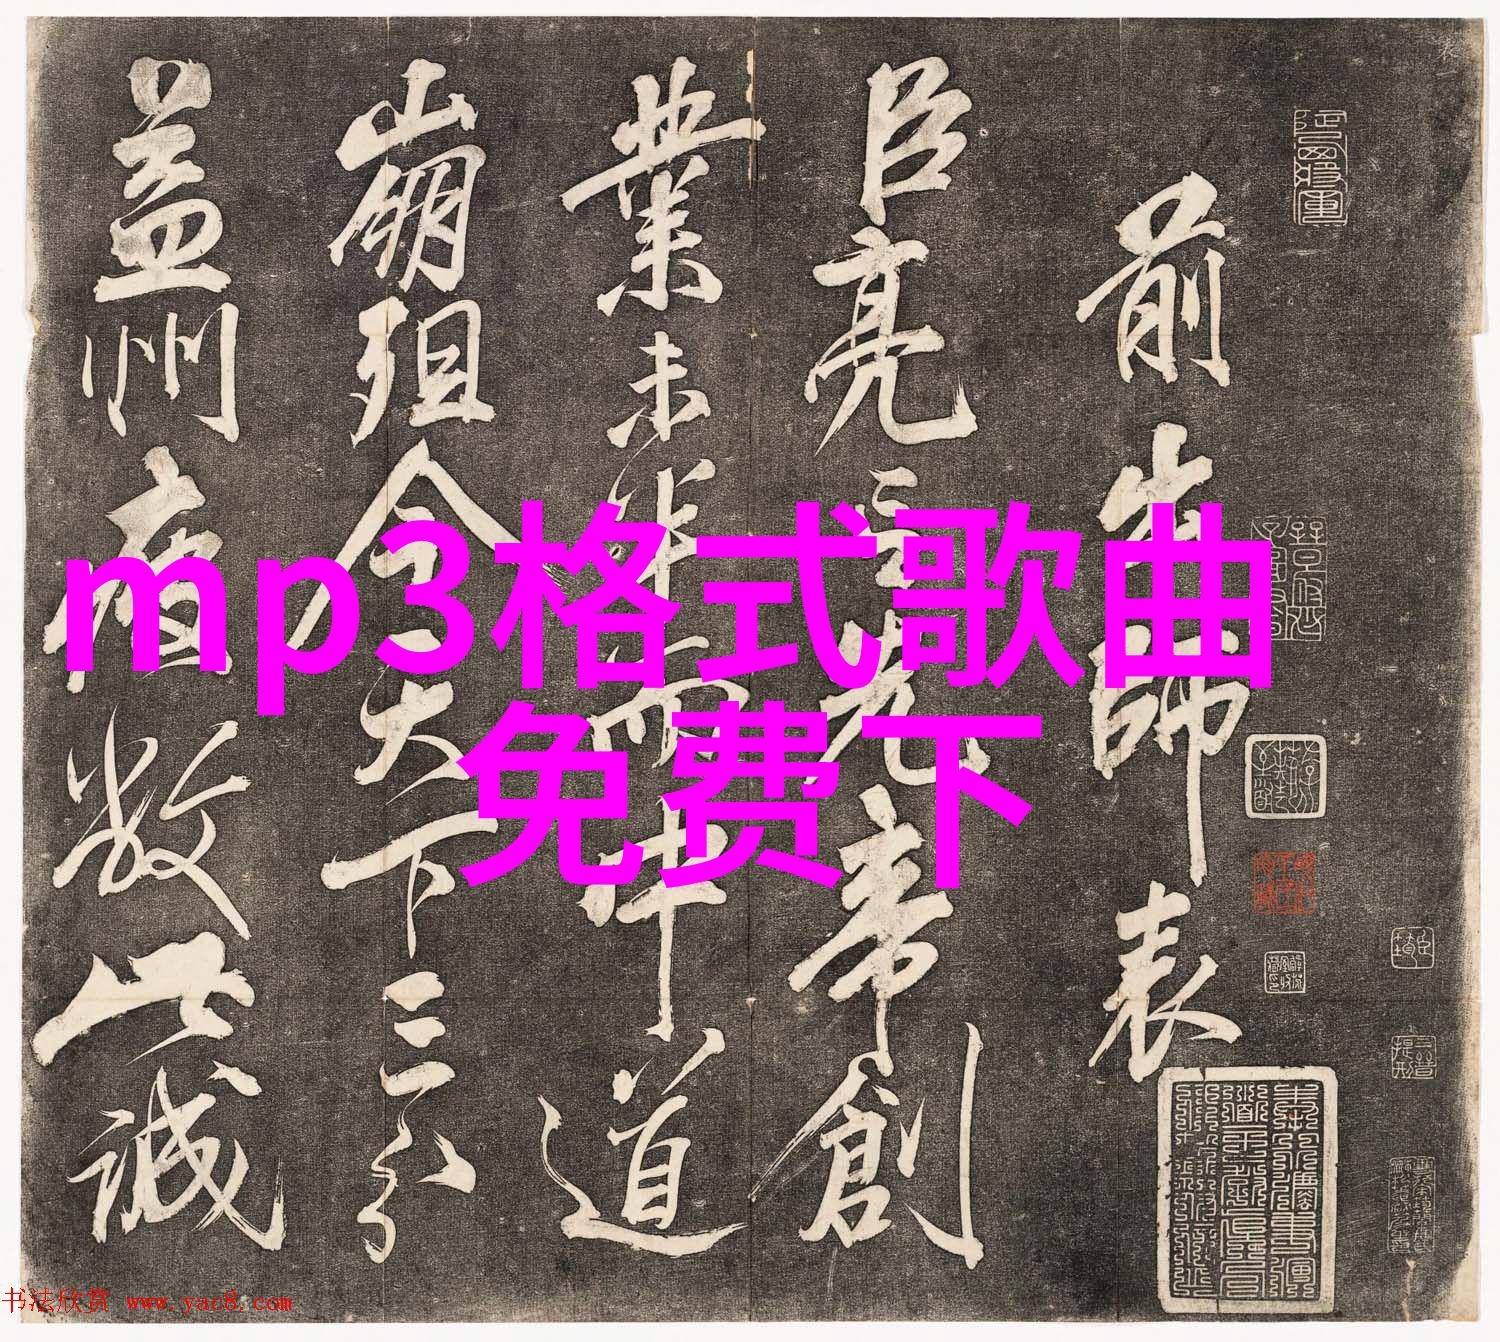 mp3格式歌曲
免费下
前出師表
臣亮言先帝創
業未半而中道
崩殂今天下三分
益州疲敝此誠
书法欣赏 www.yac8.com